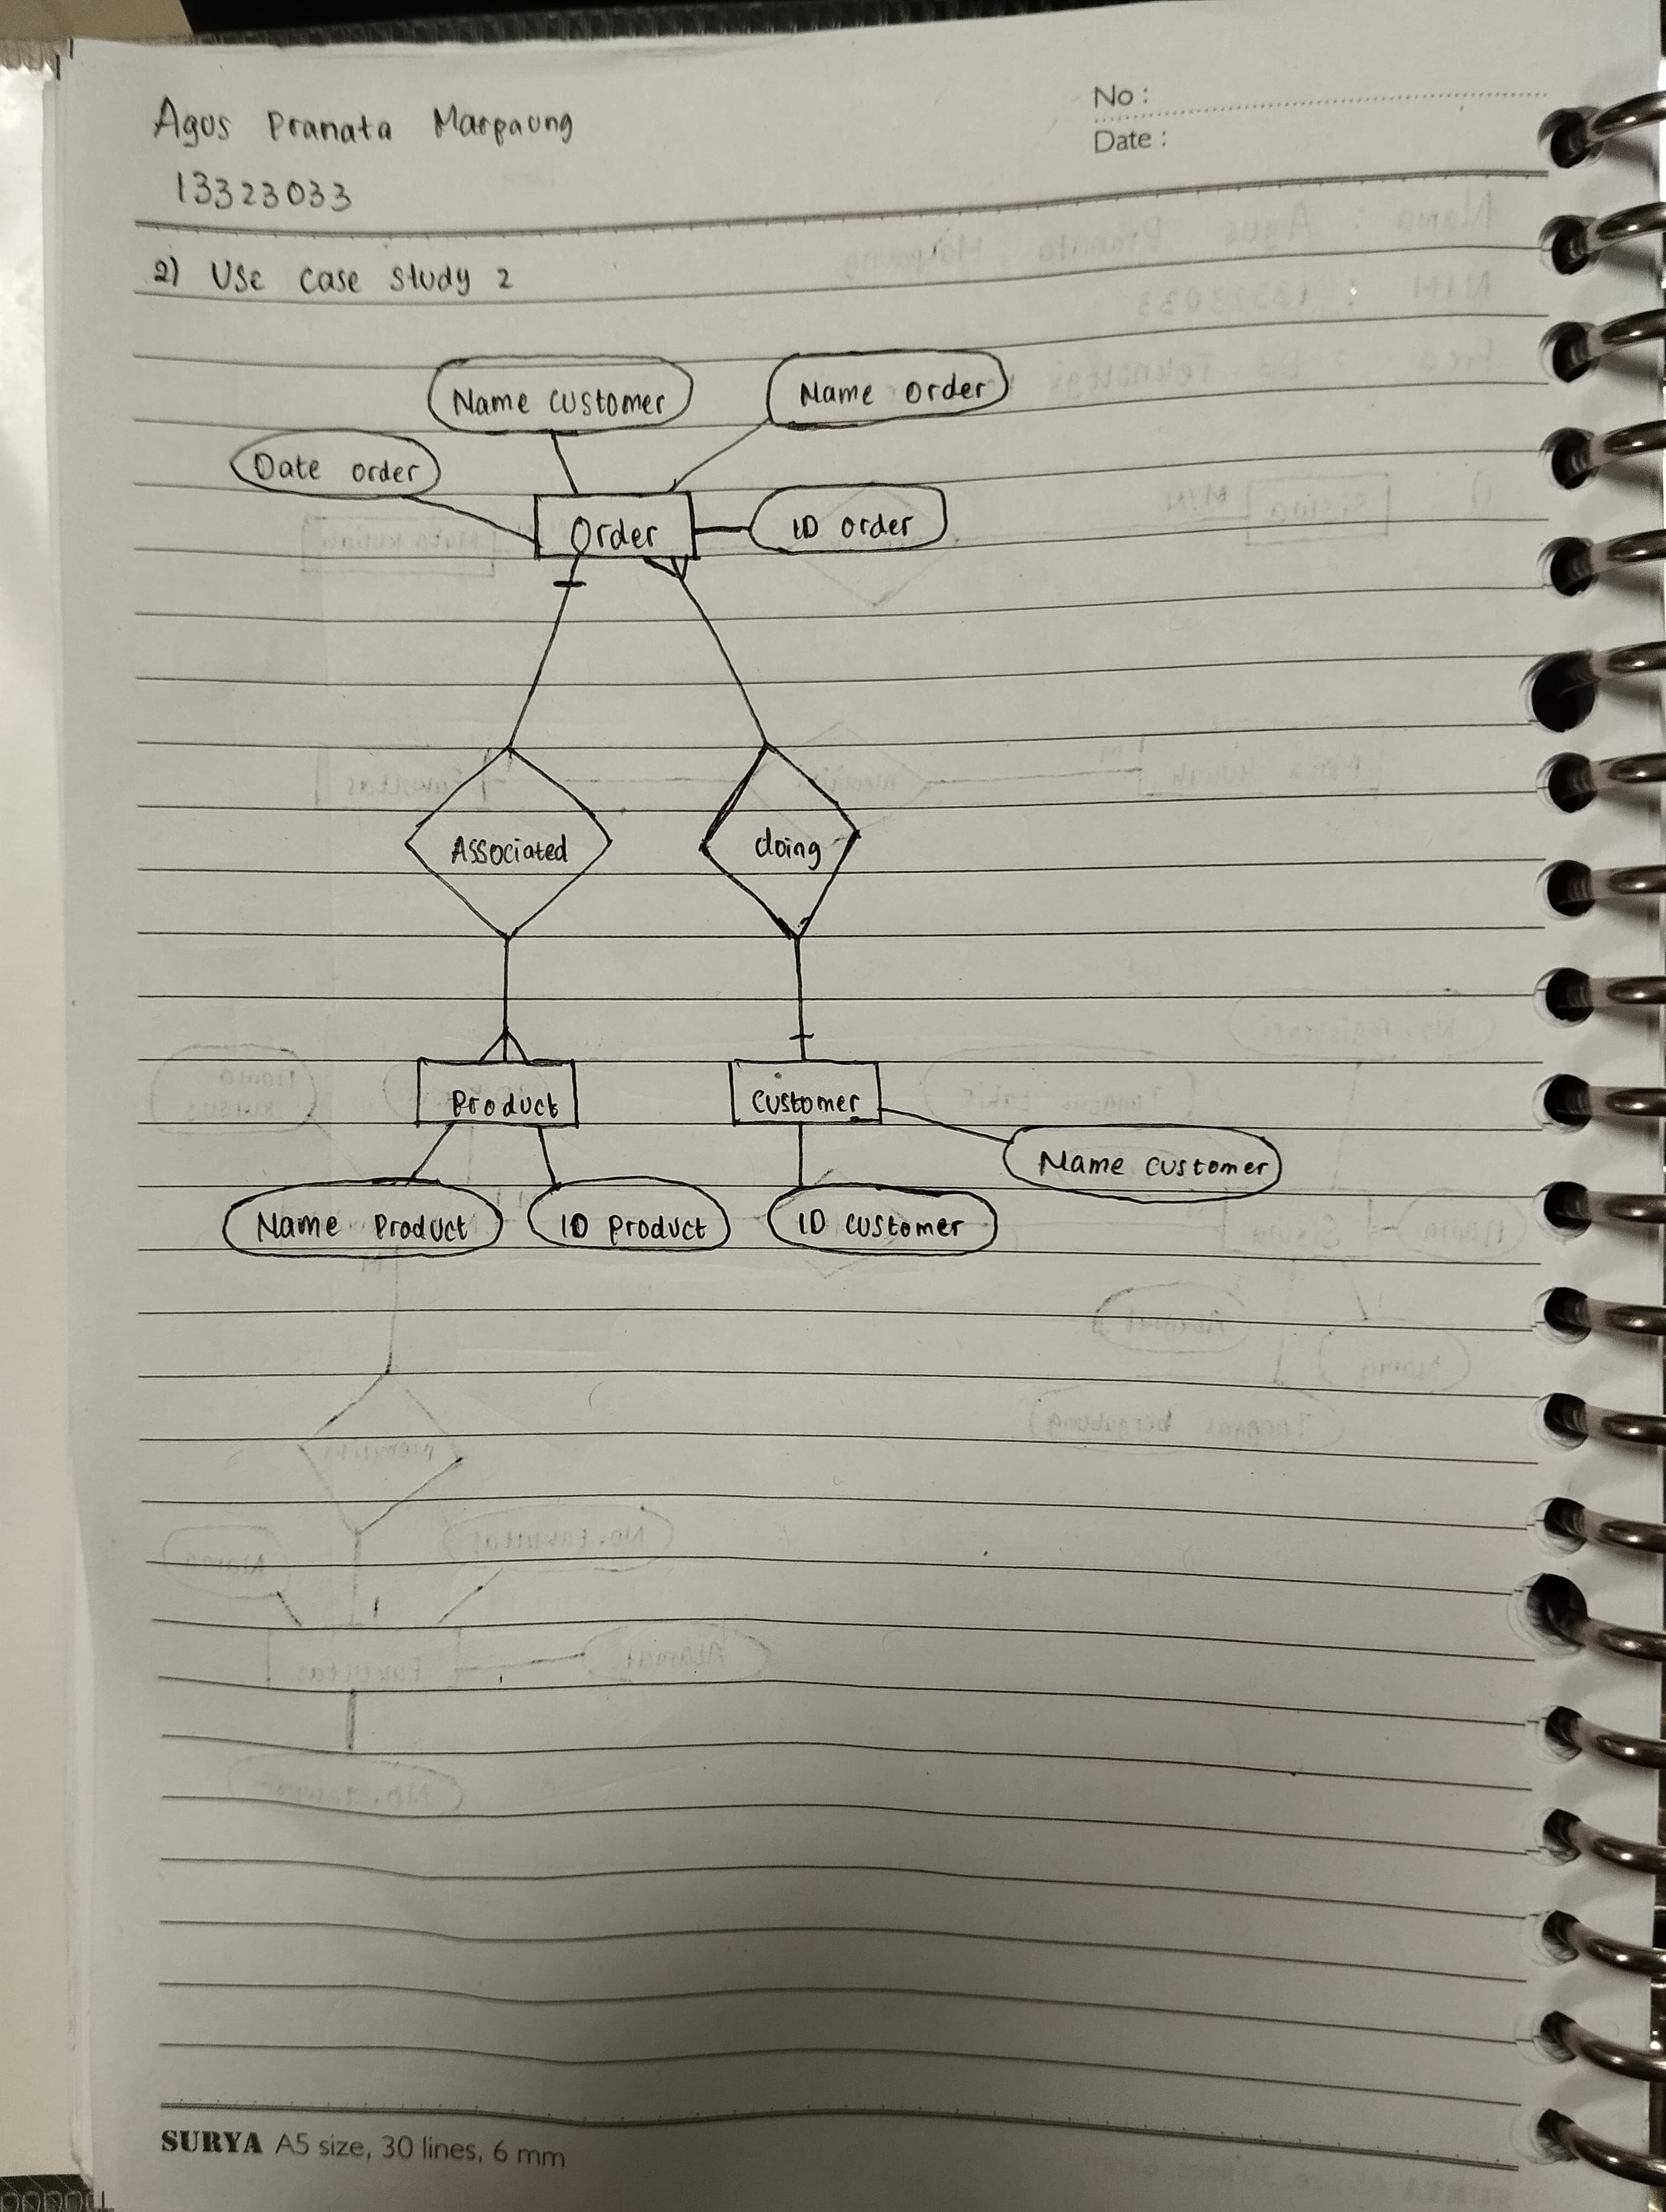 Agus Pranata Marpaung
13323033
No :
Date :
2) Use case study 2
Name customer
Name order
Date order
Order
ID order
Associated
doing
Product
customer
Name customer
Name Product
ID product
ID customer
SURYA A5 size, 30 lines, 6 mm